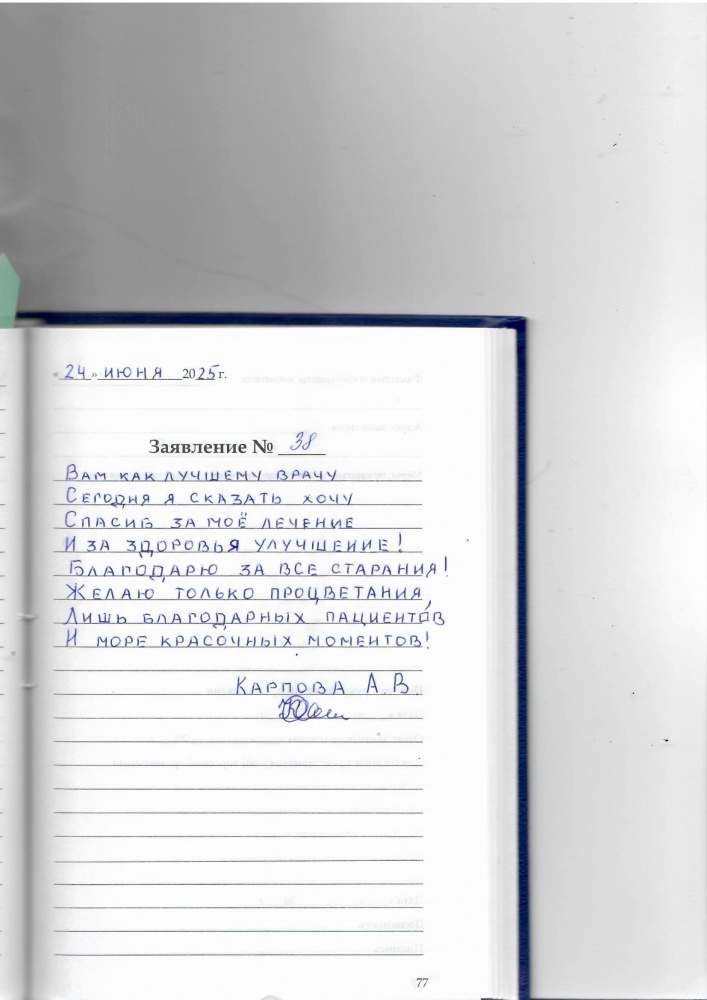 «24» июня 2025 г.
Заявление № 38
Вам как лучшему врачу
Сегодня я сказать хочу
Спасиб за моё лечение
И за здоровья улучшение!
Благодарю за все старания!
Желаю только процветания,
Лишь благодарных пациентов
И море красочных моментов!
Карпова А.В.
77